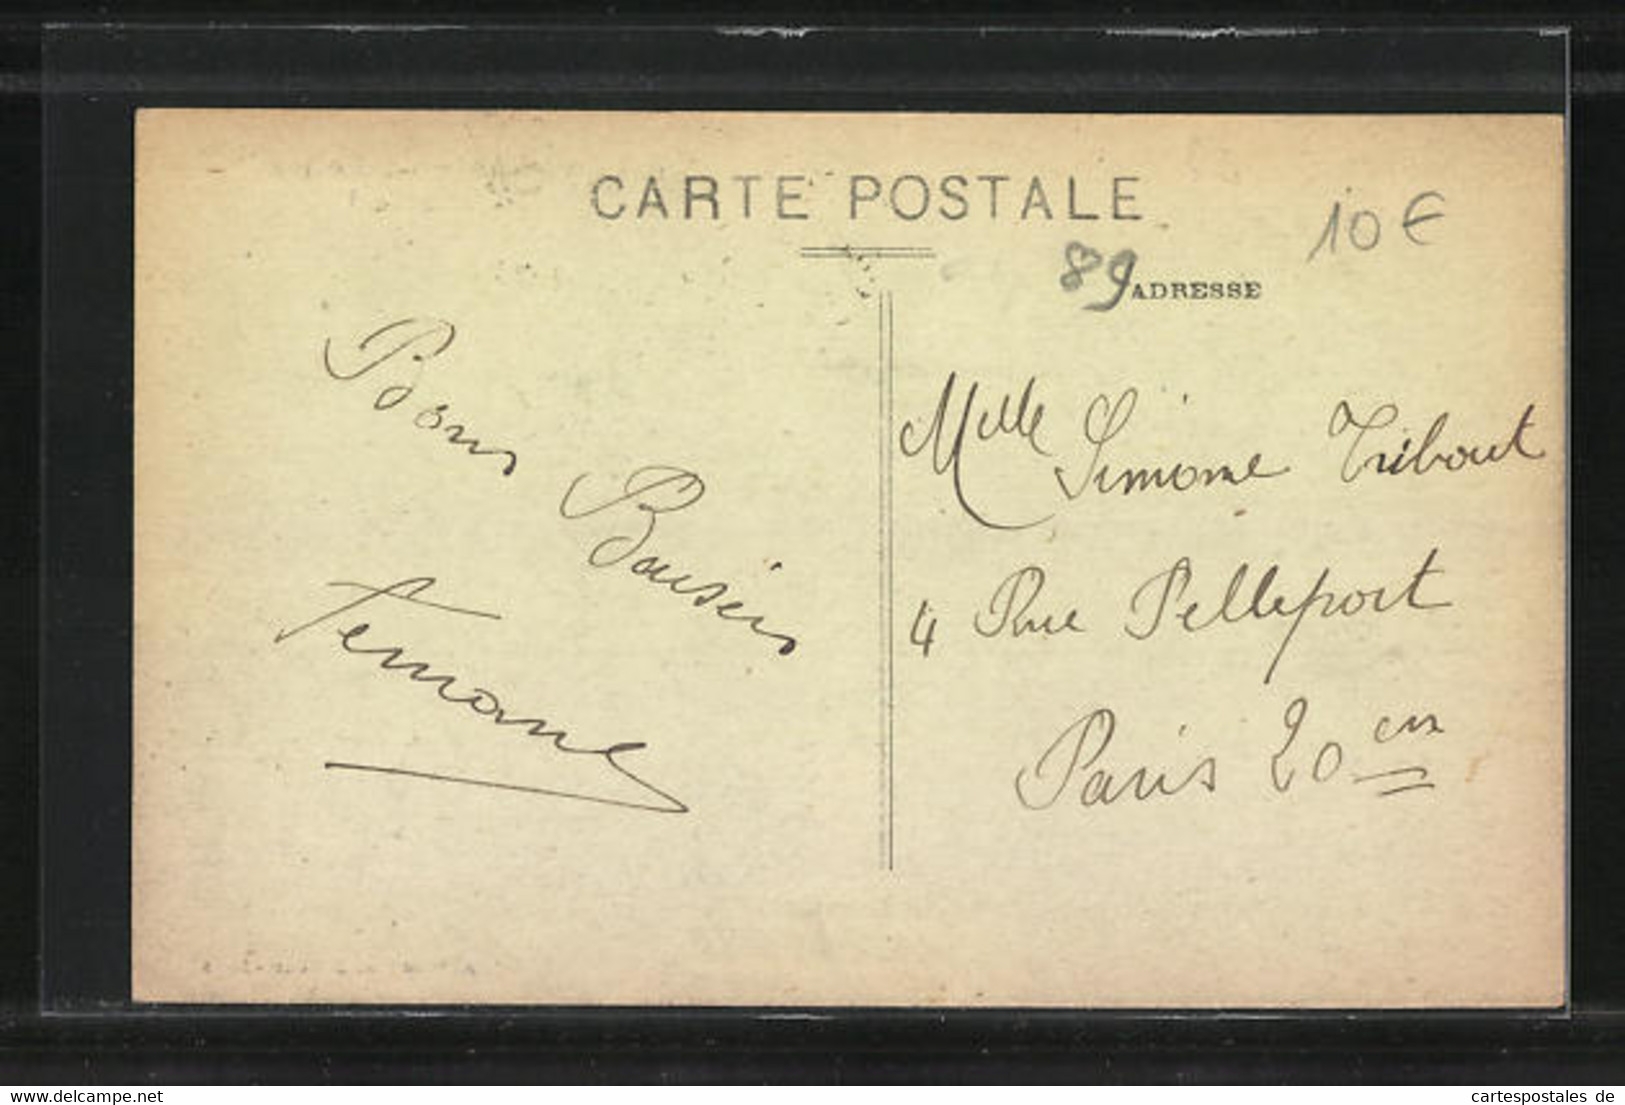 CARTE POSTALE
10 €
89
ADRESSE
Bons Baisers
Mlle Simone Tribout
4 Rue Pelleport
Paris 20em
www.delcampe.net
cartespostales de